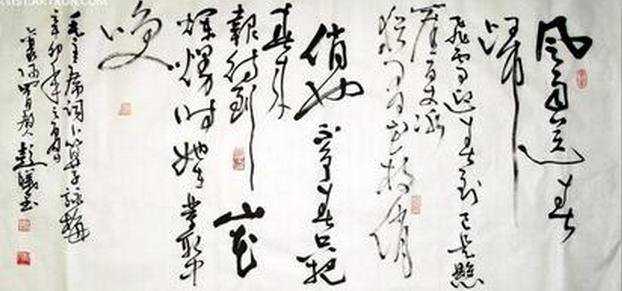 风雨送春
归
飞雪迎春到已是悬
崖百丈冰
犹有花枝俏
俏也不争春只把
春来
报待到山花
烂漫时她在丛中
笑
毛主席词卜算子咏梅
辛卯年之夏
书